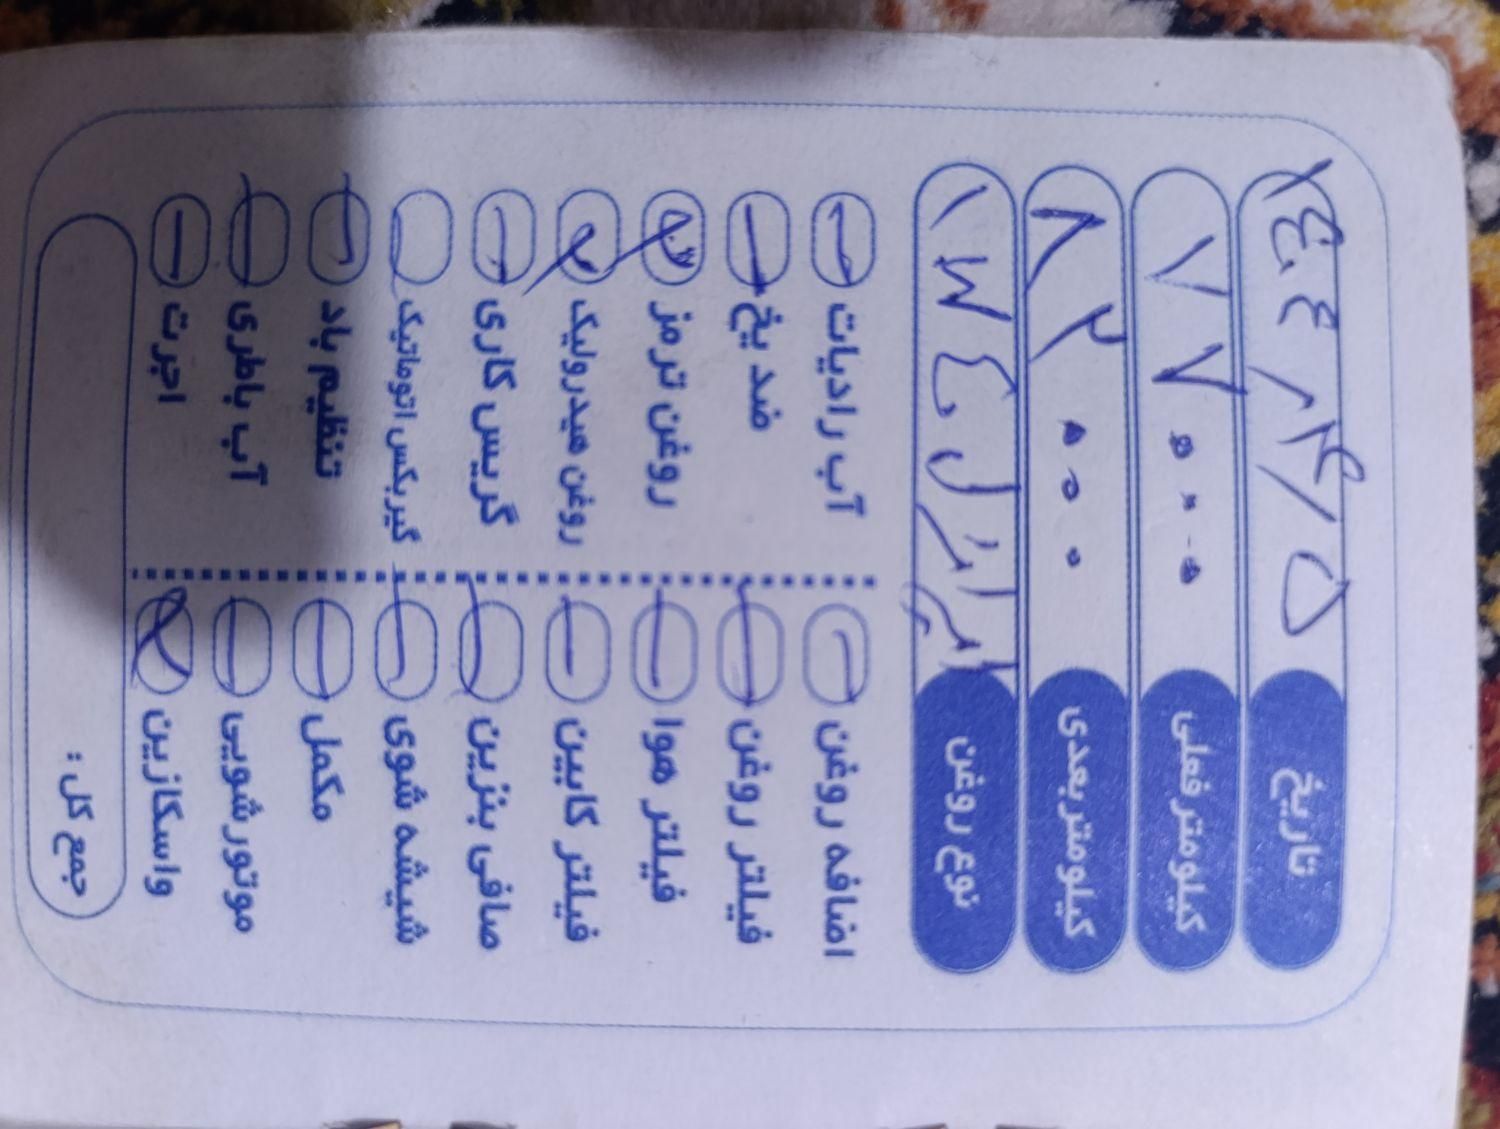 تاریخ ۱۴۰۴/۴/۵
کیلومتر فعلی ۷۷۰۰۰
کیلومتر بعدی ۸۲۰۰۰
نوع روغن
اضافه روغن آب رادیات
فیلتر روغن ضد یخ
فیلتر هوا روغن ترمز
فیلتر کابین روغن هیدرولیک
صافی بنزین گریس کاری
شیشه شوی گیربکس اتوماتیک
مکمل تنظیم باد
موتورشویی آب باطری
واسکازین اجرت
جمع کل :